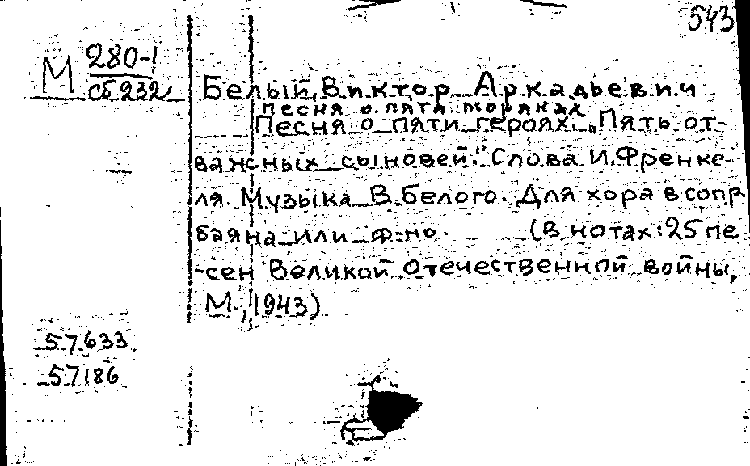 543
М 280-1
сб 232
Белый, Виктор Аркадьевич
Песня о пяти моряках
Песня о пяти героях. "Пять от-
важных сыновей." Слова И. Френке-
ля. Музыка В. Белого. Для хора в сопр
баяна или ф-но. (В нотах: 25 пе
-сен Великой Отечественной войны,
М., 1943)
57633
57186